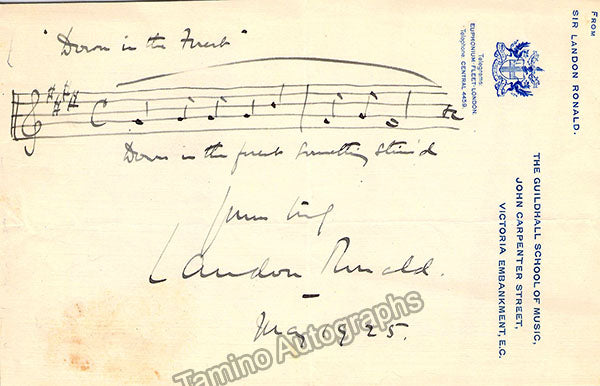 "Down in the Forest"
Down in the forest something stirr'd
Yours truly
Landon Ronald.
May 1925.
FROM
SIR LANDON RONALD.
Telegrams:
EUPHONIUM FLEET-LONDON.
Telephone: CENTRAL 4459.
THE GUILDHALL SCHOOL OF MUSIC,
JOHN CARPENTER STREET,
VICTORIA EMBANKMENT, E.C.
Tamino Autographs